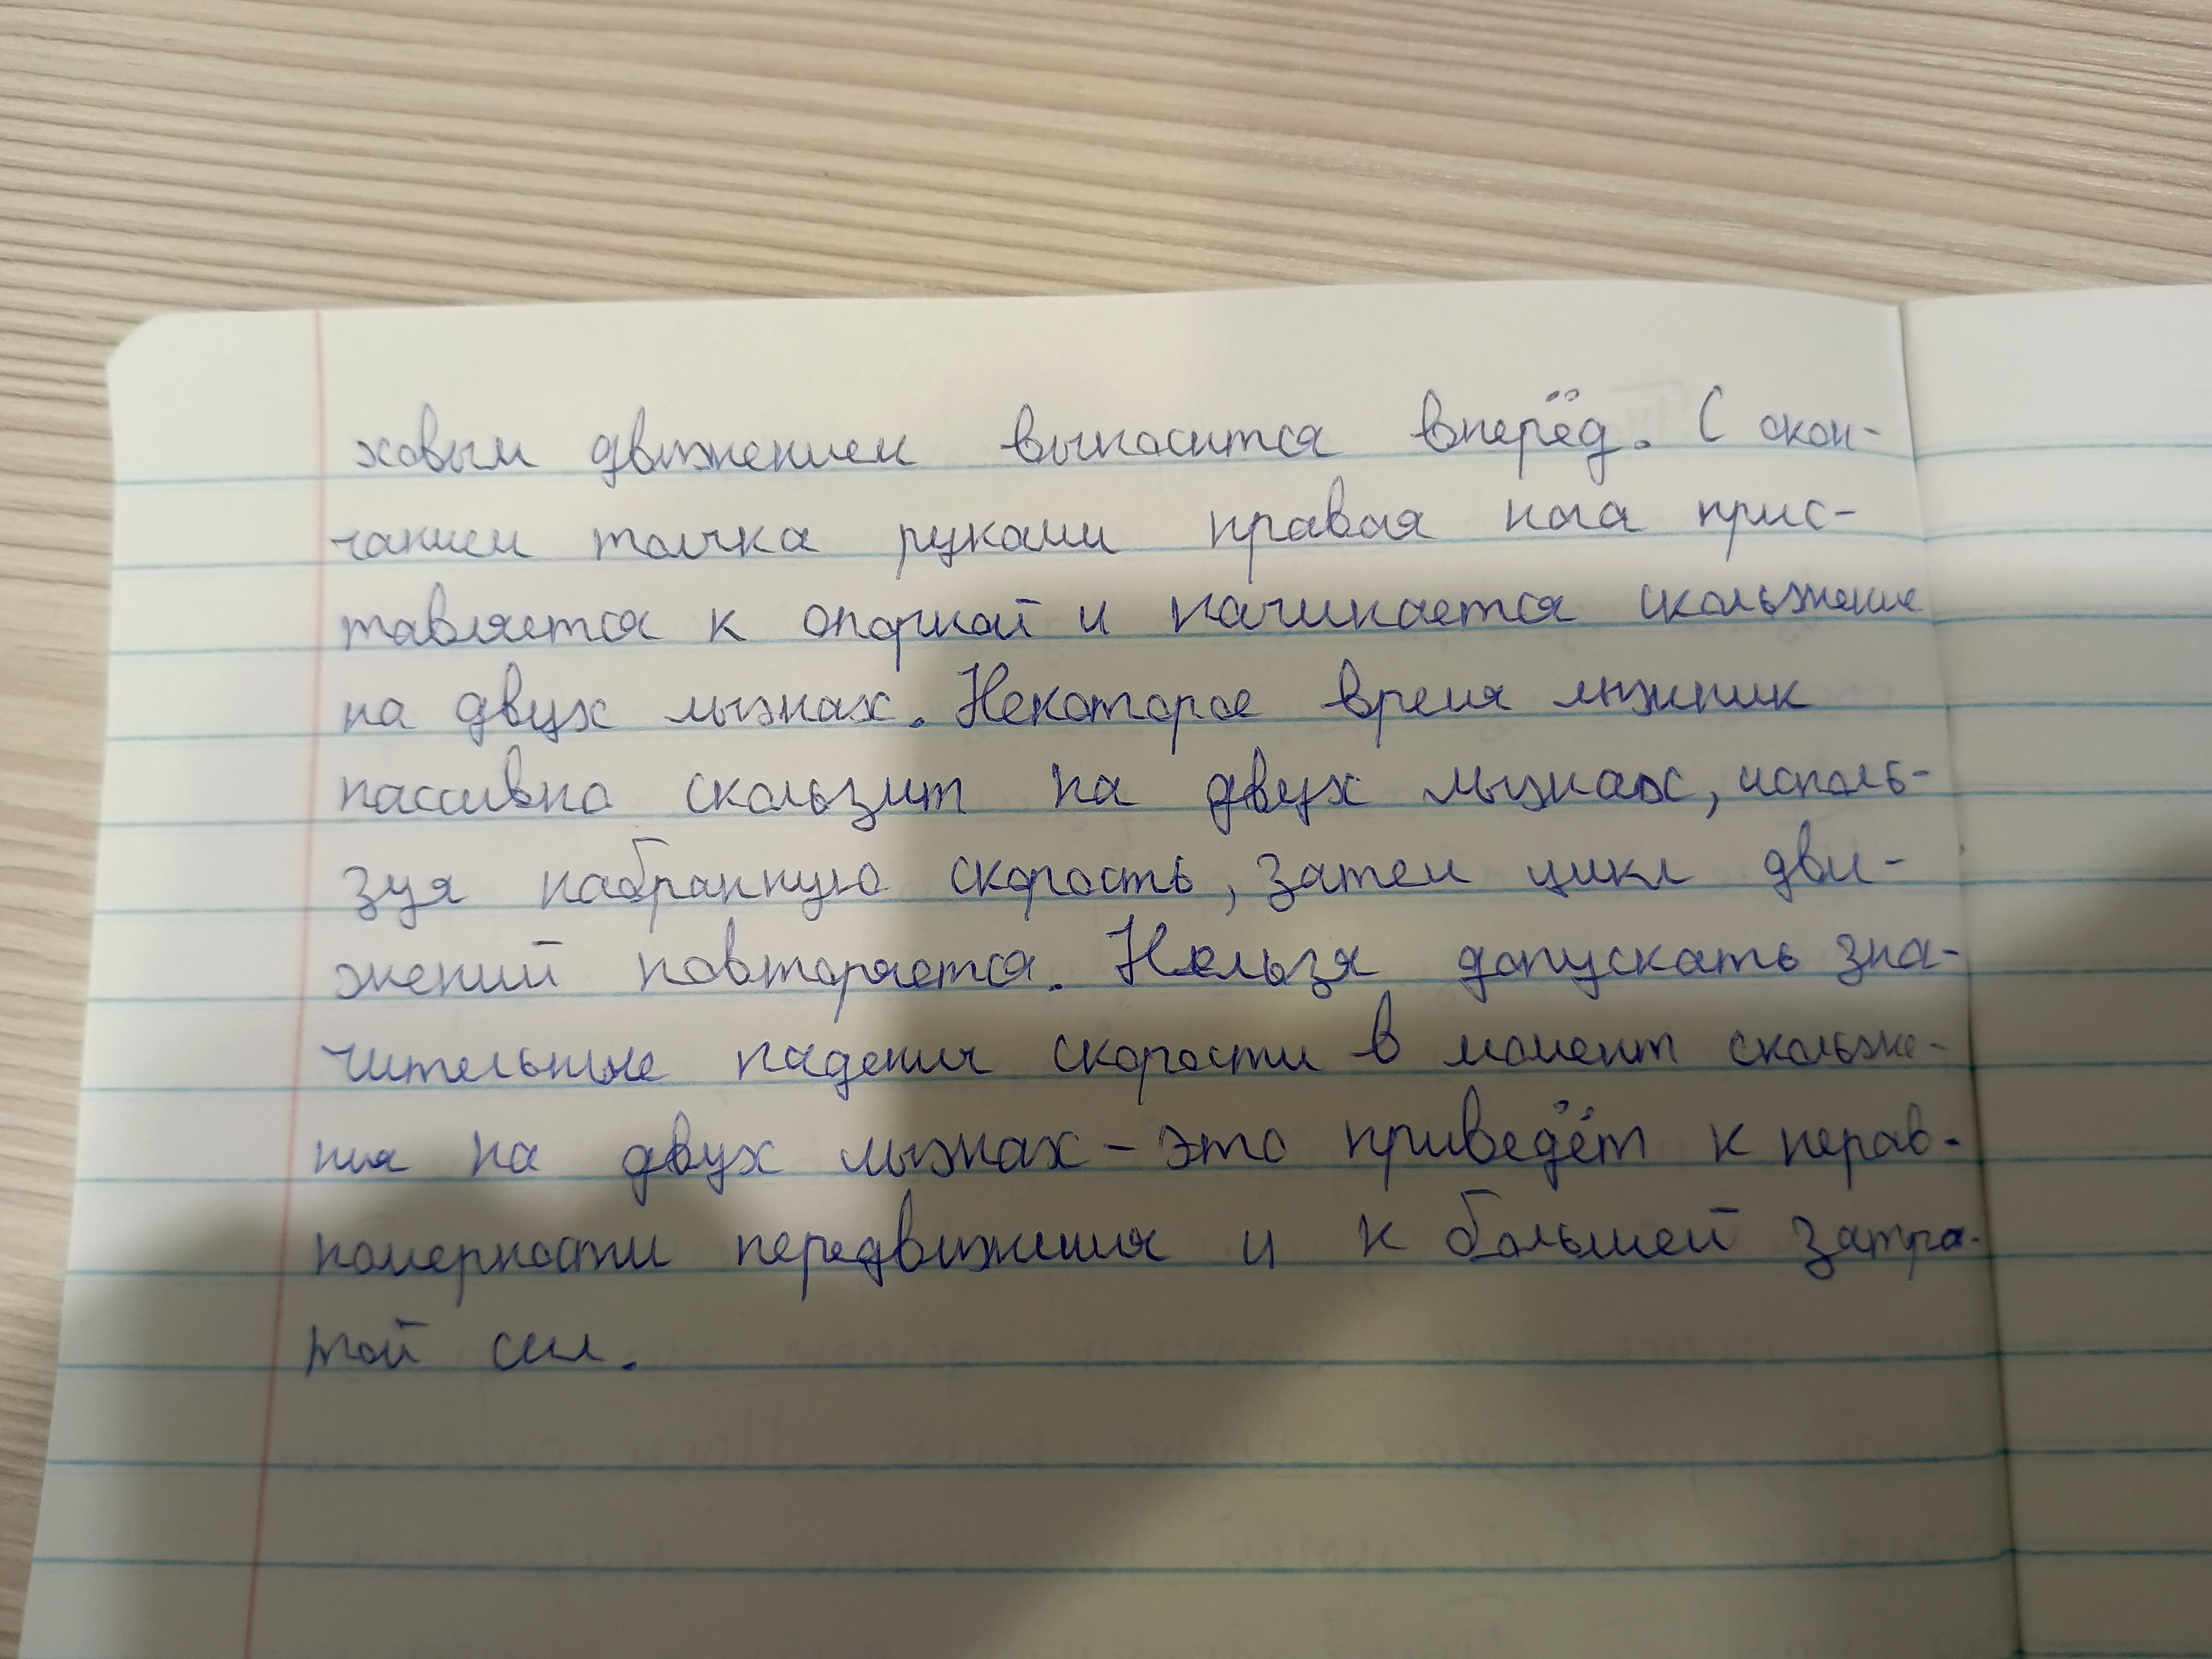 ховым движением выносится вперёд. С окон-
чанием толчка руками правая нога прис-
тавляется к опорной и начинается скольжение
на двух лыжах. Некоторое время лыжник
пассивно скользит на двух лыжах, исполь-
зуя набранную скорость, затем цикл дви-
жений повторяется. Нельзя допускать зна-
чительные падения скорости в момент скольже-
ния на двух лыжах - это приведёт к нерав-
номерности передвижения и к большей затра-
той сил.